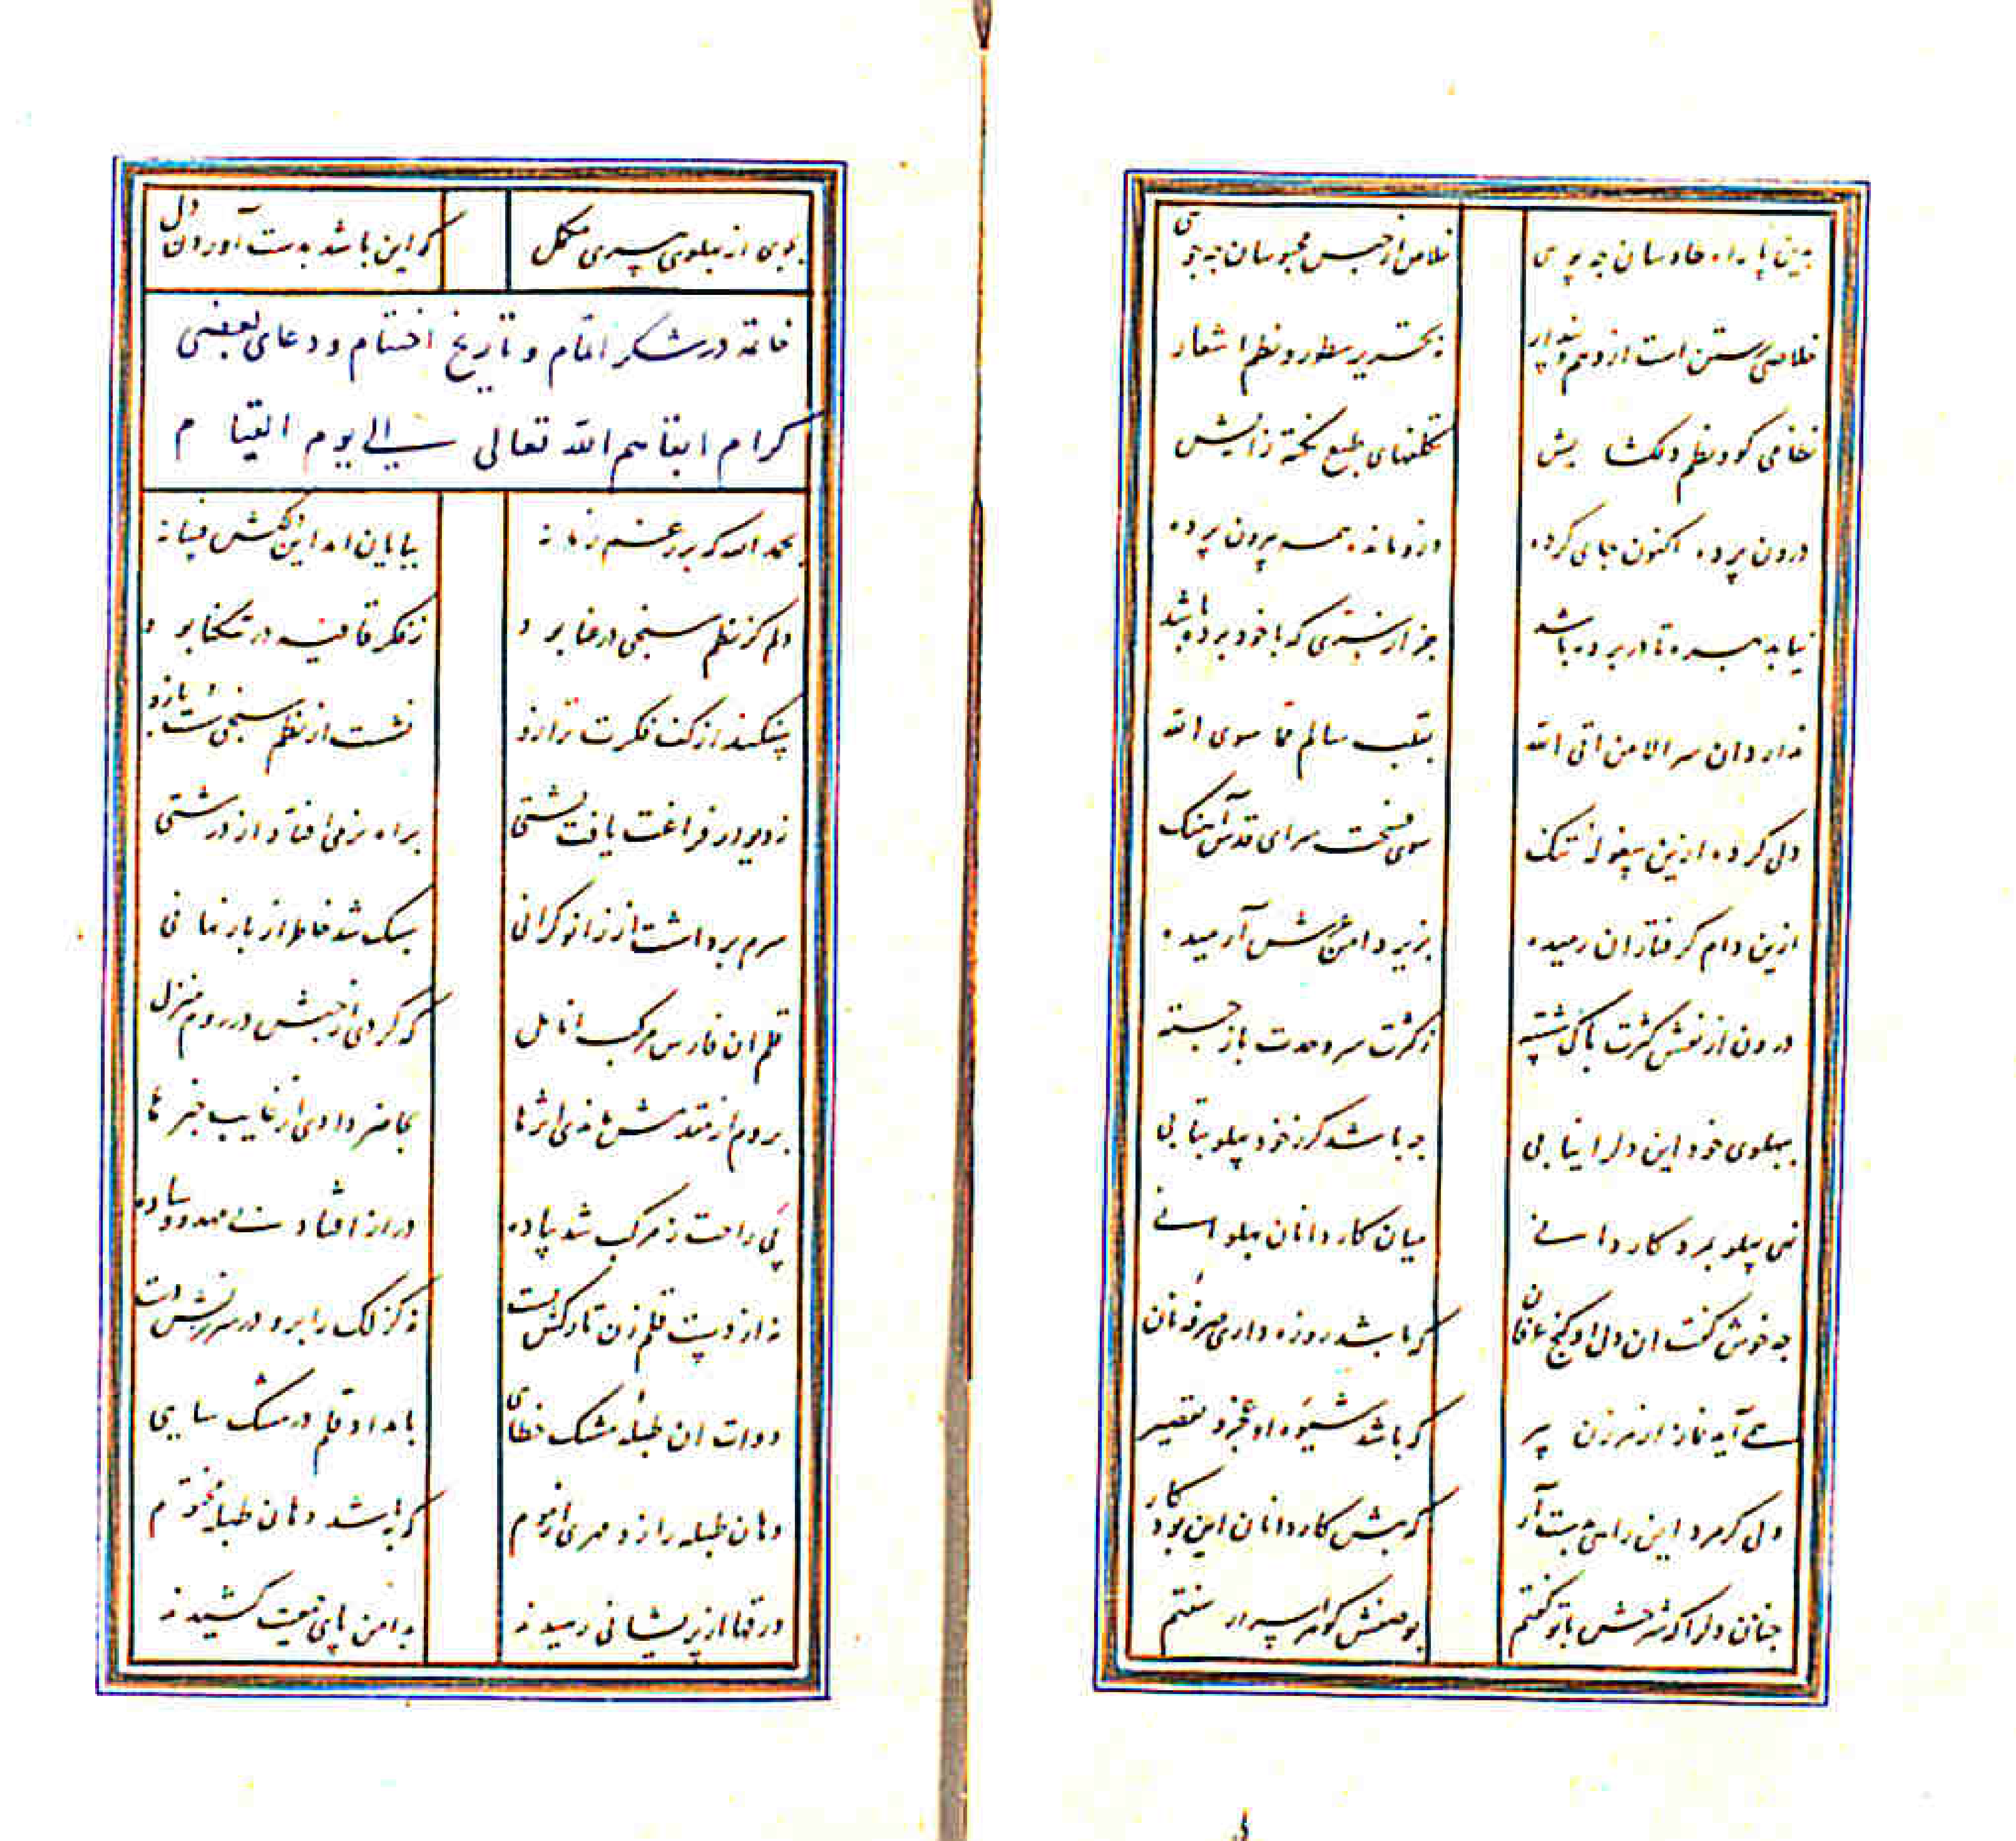 بدین پا راه طاوسان چه پویی خلاص از حبس محبوسان چه جویی
خلاصی رستن است از وهم و پندار به تحریر سطور و نظم اشعار
نظامی کو و نظم دلگشایش تکلفهای طبع نکته زایش
درون پرده اکنون جای کرده وزو مانده همه بیرون پرده
نیابد بهره تا در پرده باشد جز از سری که با خود برده باشد
ندارد آن سر الا من اتی الله بقلب سالم عما سوی الله
دلی کرده ازین بیغوله تنک سوی فسحت سرای قدس آهنک
ازین دام گرفتاران رمیده بزیر دامن عرش آرمیده
درون از نقش کثرت پاک شسته ز کثرت سر وحدت باز جسته
بپهلوی خود این دل را نیابی چه باشد گر ز خود پهلو بتابی
نهی پهلو بمرد کاردانی میان کاردانان پهلوانی
چه خوش گفت ان دل او گنج عرفان که باشد روزه داری صرفه نان
همی آید نماز از هر زن پیر که باشد شیوه او عجز و تقصیر
دلی گر مردی این ره بدست آر که پیش کاردانان این بود کار
چنان دل را که شرحش با تو گفتم بوصفش گوهر اسرار سفتم
بجوی از پهلوی پیری مکمل که این باشد بدست آوردن دل
خاتمه در شکر اتمام و تاریخ اختتام و دعای بعضی
کرام ابقاهم الله تعالی الی یوم القیام
بحمد الله که بر رغم زمانه بپایان امد این دلکش فسانه
دلم کز نظم سنجی در عنا بود ز فکر قافیه در تنگنا بود
بیفکند از کف فکرت ترازو نشست از نظم سنجی سست بازو
ز دیوار فراغت یافت پشتی براه نرمی افتاد از درشتی
سرم برداشت از زانو گرانی سبک شد خاطر از بار نهانی
قلم ان فارس مرکب انامل که کردی از حبش در روم منزل
بروم از مقدمش ماندی اثرها بحاضر دادی از غایب خبرها
پی راحت ز مرکب شد پیاده دراز افتاد بی مهد و وساده
نه از دست قلم زن تارکش پست نه گزلک را برو در سرزنش دست
دوات ان طبله مشک خطای بامداد قلم در مشک سایی
دهان طبله را زد مهری از موم که باشد دهان طبله مختوم
ورقها از پریشانی رمیدند بدامن پای جمعیت کشیدند